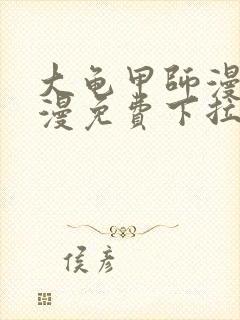 大龟甲師漫
漫免費下拉
侯彦